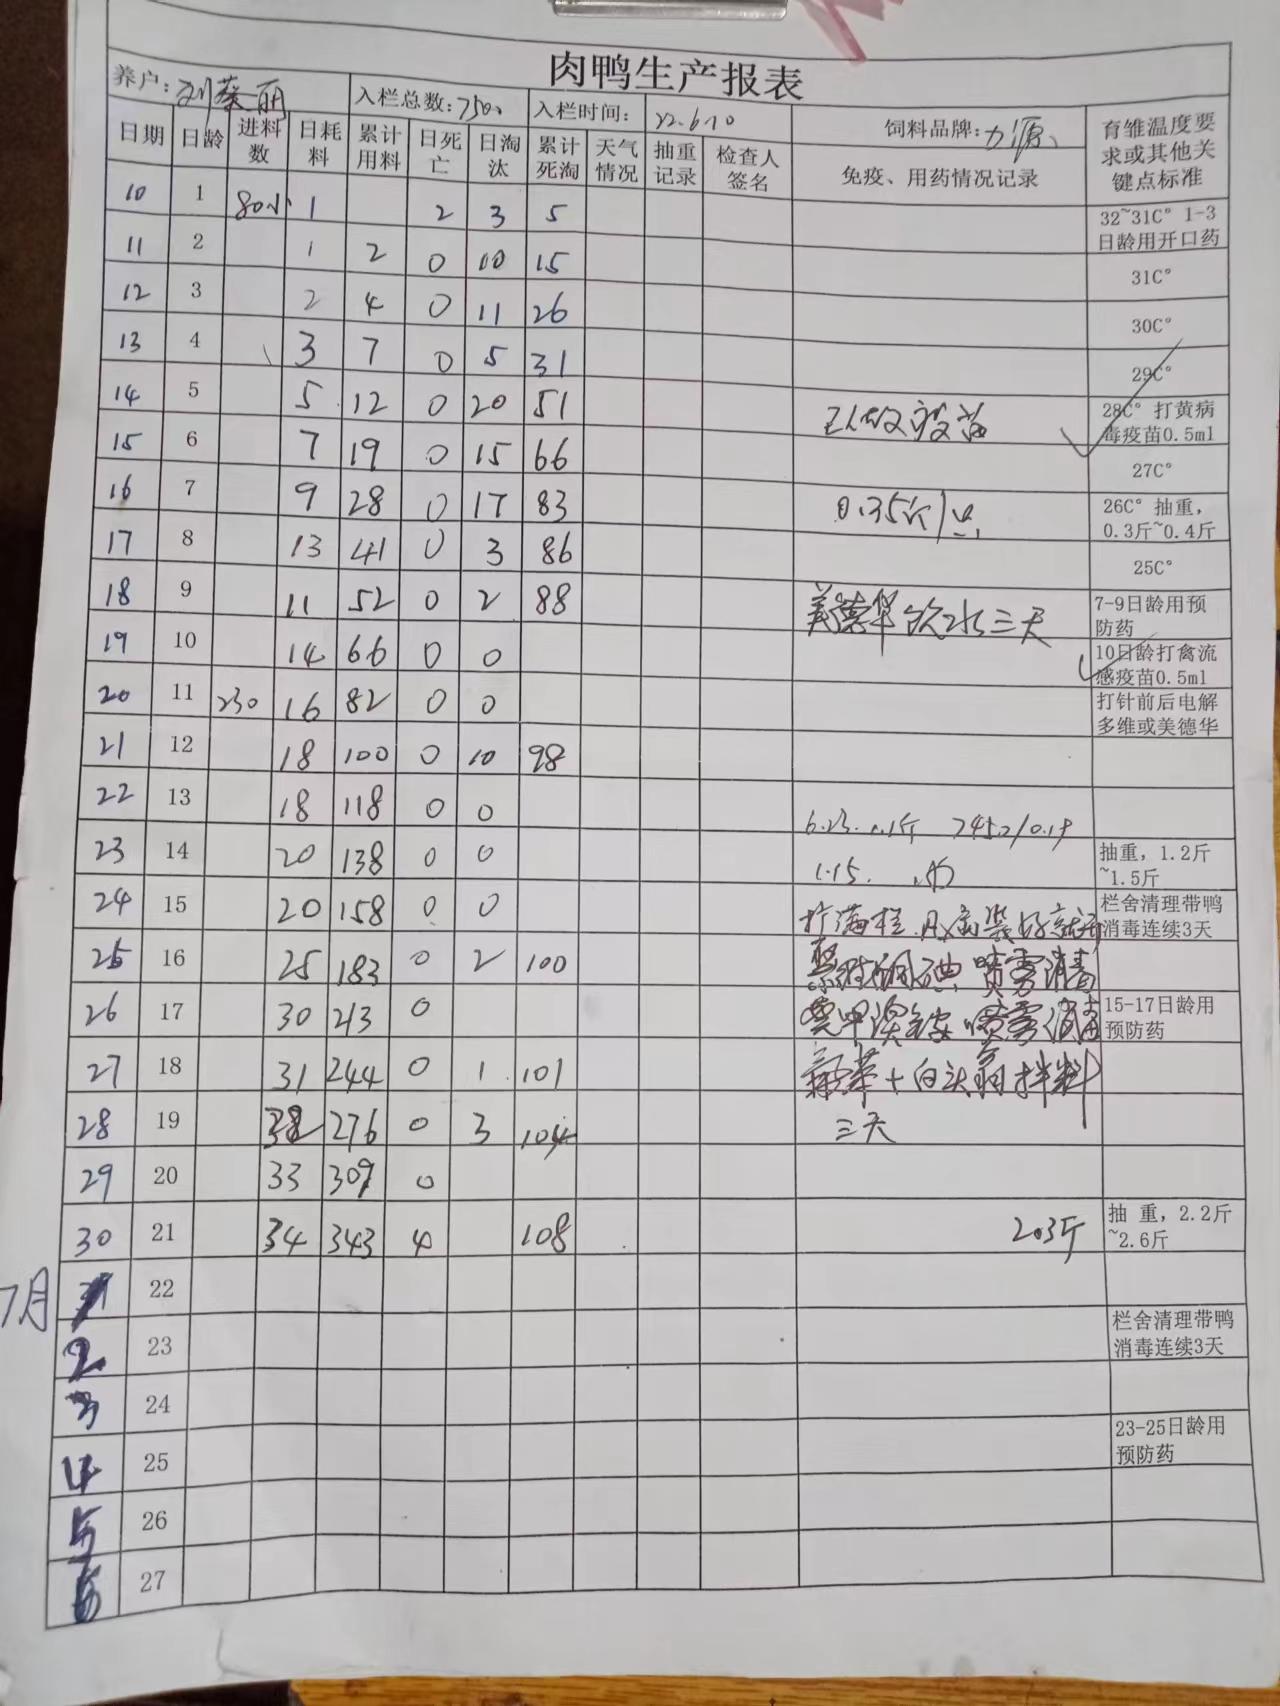 肉鸭生产报表
养户: 入栏总数:7500 入栏时间: 22.6.10 饲料品牌:力源 育雏温度要求或其他关键点标准
日期 日龄 进料数 日耗料 累计用料 日死亡 日淘汰 累计死淘 天气情况 抽重记录 检查人签名 免疫、用药情况记录
10 1 80小 1 2 3 5 32~31C° 1-3日龄用开口药
11 2 1 2 0 10 15 31C°
12 3 2 4 0 11 26 30C°
13 4 3 7 0 5 31 29C°
14 5 5 12 0 20 51 已做疫苗 28C° 打黄病毒疫苗0.5ml
15 6 7 19 0 15 66 27C°
16 7 9 28 0 17 83 0.35斤/只 26C° 抽重，0.3斤~0.4斤
17 8 13 41 0 3 86 25C°
18 9 11 52 0 2 88 美德华饮水三天 7-9日龄用预防药
19 10 14 66 0 0 10日龄打禽流感疫苗0.5ml
20 11 230 16 82 0 0 打针前后电解多维或美德华
21 12 18 100 0 10 98
22 13 18 118 0 0
23 14 20 138 0 0 1.15. 抽重，1.2斤~1.5斤
24 15 20 158 0 0 栏舍清理带鸭消毒连续3天
25 16 25 183 0 2 100 喷雾消毒
26 17 30 213 0 喷雾消毒 15-17日龄用预防药
27 18 31 244 0 1 101 +白头翁拌料
28 19 32 276 0 3 104 三天
29 20 33 309 0
30 21 34 343 4 108 2.03斤 抽 重，2.2斤~2.6斤
7月 22
2 23 栏舍清理带鸭消毒连续3天
3 24
4 25 23-25日龄用预防药
5 26
6 27